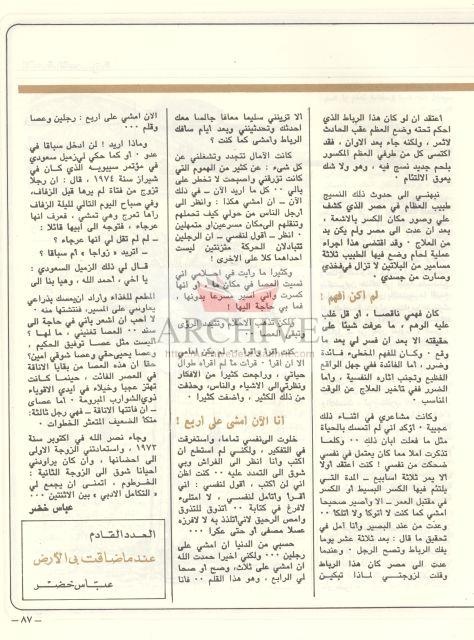 اعتقد ان لو كان هذا الرباط الذي
احكم تحته وضع العظم عقب الحادث
لاثمر ، ولكنه جاء بعد الاوان ، فقد
اكتسى كل من طرفى العظم المكسور
بلحم جديد نسج فيه ، وهو لا شك
يعوق الالتئام ٠
نبهنى الى حدوث ذلك النسيج
طبيب العظام في مصر الذى كشف
على وصور مكان الكسر بالاشعة ،
بعد ان عدت الى مصر ولم يكن بد
من العلاج ٠ وقد اقتضى هذا اجراء
عملية لحام وضع فيها الطبيب ثلاثة
مسامير من البلاتين لا تزال في فخذي
وصارت من جسدي ٠
لم اكن افهم !
كان فهمي ناقصا ، او قل غلب
عليه الوهم ، ما عرفت شيئا على
حقيقته الا بعد ان فسر لي بعد ما
وقع ٠ وكان للفهم الخطىء فائدة
وضرر ، اما الفائدة ففي جهل الواقع
الفظيع وتجنب اثاره النفسية ، واما
الضرر ففي تأخير العلاج عن الوقت
المناسب ٠
وكانت مشاعري في اثناء ذلك
عجيبة ٠ اؤكد اني لم اتمسك بالحياة
مثل ما فعلت ابان ذلك ٠٠ وكلما
تذكرت املا مما كان يعتمل في نفسي
ضحكت من نفسي ! كنت اعتقد اولا
الا يمر ثلاثة اسابيع – المدة التي
يلتئم فيها الكسر البسيط او الكسر
في مقتبل العمر – الا واصير صحيحا
امشي كما كنت لا اتوكأ ولا اتلكأ ٠٠
وعدت من عند البصير وانا آمل في
تحقيق ما قال : بعد ثلاثة عشر يوما
يفك الرباط وتصح الرجل ٠ وعندما
عدت الى مصر كان هذا الرباط
وقلت لزوجتي لماذا تبكين
الا ترينني سليما معافا جالسا معك
احدثك وتحدثينني وبعد ايام سافك
الرباط وامشي كما كنت ؟
كانت الآمال تتجدد وتشغلني عن
كل شيء : عن كثير من الهموم التي
كانت تؤرقني واصبحت لا تخطر على
بالي ٠٠ كل ما اريد الآن – في ذلك
الآن – ان امشي هكذا : وانظر الى
ارجل الناس من حولي كيف تحملهم
وتنقلهم الى مكان مسرعين او متمهلين
٠ انظر – اقول لنفسي – ان الرجلين
تتبادلان الحركة متزنتين ليست
احداهما كلا على الاخرى !
وكثيرا ما رأيت في احلامي اني
نسيت العصا في مكان ما ، او انها
كسرت واني اسير مسرعا بدونها ،
فما بي حاجة اليها !
ولكن تذهب الاحلام وتتبدد الرؤى
وتبقى العصا ٠٠
كنت اقرأ واقرأ ٠٠ لم يكن امامي
الا ان اقرأ ٠ قرأت ما لم اقرأه طوال
حياتي ، وراجعت كثيرا من الافكار
ونظرتي الى الاشياء والناس ، وحذفت
من ذلك الكثير ، واضفت كثيرا ٠
أنا الآن امشى على أربع !
خلوت الى نفسي تماما ، واستغرقت
في التفكير ، ولكني لم استطع ان
اكتب وانا انظر الى الفراش وبي
شوق الى التمدد عليه ٠٠ كنت اظن
اني لن اكتب ، اقول لنفسي : اني
اقرأ واتأمل لنفسي ، لا امتلىء
لافرغ في كتابة ٠٠ اتذوق للتذوق
وامص الرحيق لأني اتلذذ به لا لافرزه
عسلا مصفى او حتى عكرا ٠٠
حسبي من الدنيا ان امشي على
رجلين ٠٠٠ ولكني اخيرا حمدت الله
ان امشي على ثلاث، وصح او صحا
لي الرابع ، وهو هذا القلم ٠٠ فأنا
الآن امشي على اربع : رجلين وعصا
وقلم ٠٠٠
وماذا اريد ! لن ادخل سباقا في
عدو ٠ او كما حكى لي زميل سعودي
في مؤتمر سيبويه الذي كان في
شيراز سنة ١٩٧٤ ، قال : ان رجلا
تزوج من فتاة لم يرها قبل الزفاف،
وفي صباح اليوم التالي لليلة الزفاف
رآها تعرج وهي تمشي ، فعرف انها
عرجاء ، فتوجه الى ابيها قائلا :
– لم لم تقل لي انها عرجاء ؟
– اتريد « زواجا » ام سباقا ؟
قال لي ذلك الزميل السعودي :
يا أخي ، احمد الله ، وهيا بنا الى
المطعم للغداء واراد ان يمسك بذراعي
يعاونني على المسير، فنشتها منه ٠
لا احب ان اشعر بأني في حاجة الى
سند ٠٠ العصا تغنيني ، ما لها ؟
اليست مثل عصا توفيق الحكيم ،
وعصا يحيى حقي وعصا شوقي امين؟
حقا ان هذه العصا من بقايا الاناقة
في العصر الفائت ، حينما كانت
تهتز عجبا وخيلاء في ايدي الاقوياء
ذوي الشوارب المبرومة ٠ اما عصاي
– ان فاتتها الاناقة – فهي رجل ثالثة:
متكأ الضعيف المتعثر الخطوات ٠
وجاء نصر الله في اكتوبر سنة
١٩٧٣ ، واستعادتني الزوجة الاولى
الى احضانها ، وأن كان يراودني
احيانا شوق الى الزوجة الثانية :
الخرطوم ، اتمنى ان يجمع لي
« التكامل الادبي » بين الاثنتين ٠٠٠
عباس خضر
العدد القادم
عندما ضاقت بي الأرض
عباس خضر
ARCHIVE
– ٨٧ –